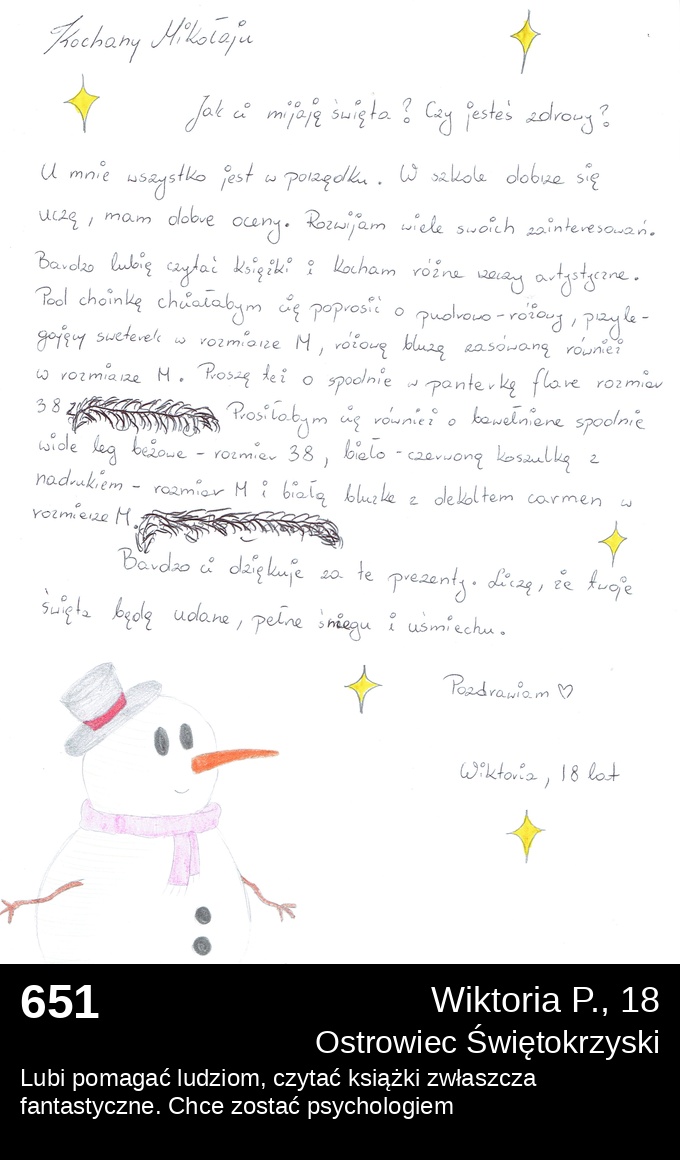 Kochany Mikołaju
Jak ci mijają święta? Czy jesteś zdrowy?
U mnie wszystko jest w porządku. W szkole dobrze się
uczę, mam dobre oceny. Rozwijam wiele swoich zainteresowań.
Bardzo lubię czytać książki i kocham różne rzeczy artystyczne.
Pod choinkę chciałabym cię poprosić o pudrowo-różowy, przyle-
gający sweterek w rozmiarze M, różową bluzę zasówaną również
w rozmiarze M. Proszę też o spodnie w panterkę flare rozmiar
38 Prosiłabym cię również o bawełniane spodnie
wide leg beżowe - rozmiar 38, biało-czerwoną koszulkę z
nadrukiem - rozmiar M i białą bluzkę z dekoltem carmen w
rozmiarze M.
Bardzo ci dziękuję za te prezenty. Liczę, że twoje
święta będą udane, pełne śniegu i uśmiechu.
Pozdrawiam ♡
Wiktoria, 18 lat
651
Wiktoria P., 18
Ostrowiec Świętokrzyski
Lubi pomagać ludziom, czytać książki zwłaszcza
fantastyczne. Chce zostać psychologiem